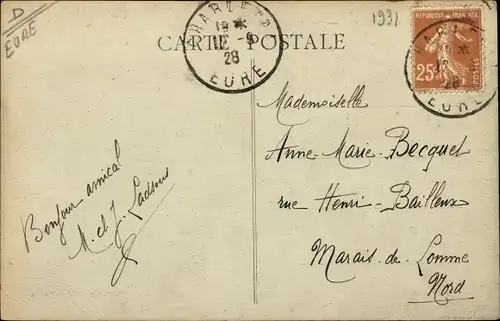 D
EURE
1931
CARTE POSTALE
HARLEU
19 *
12 -9
28
EURE
REPUBLIQUE FRANÇAISE
25c
POSTES
28
EURE
Mademoiselle
Anne-Marie-Becquet
rue Henri-Bailleux
Marais-de-Lomme
Nord
Bonjour amical
M. et J.